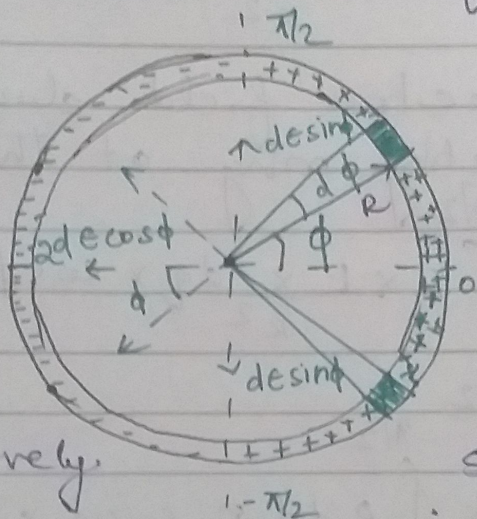 π/2
+ + + + + +
desinφ
dφ
R
2decosφ
φ
0
φ
desinφ
+ + + + + +
vely.
-π/2